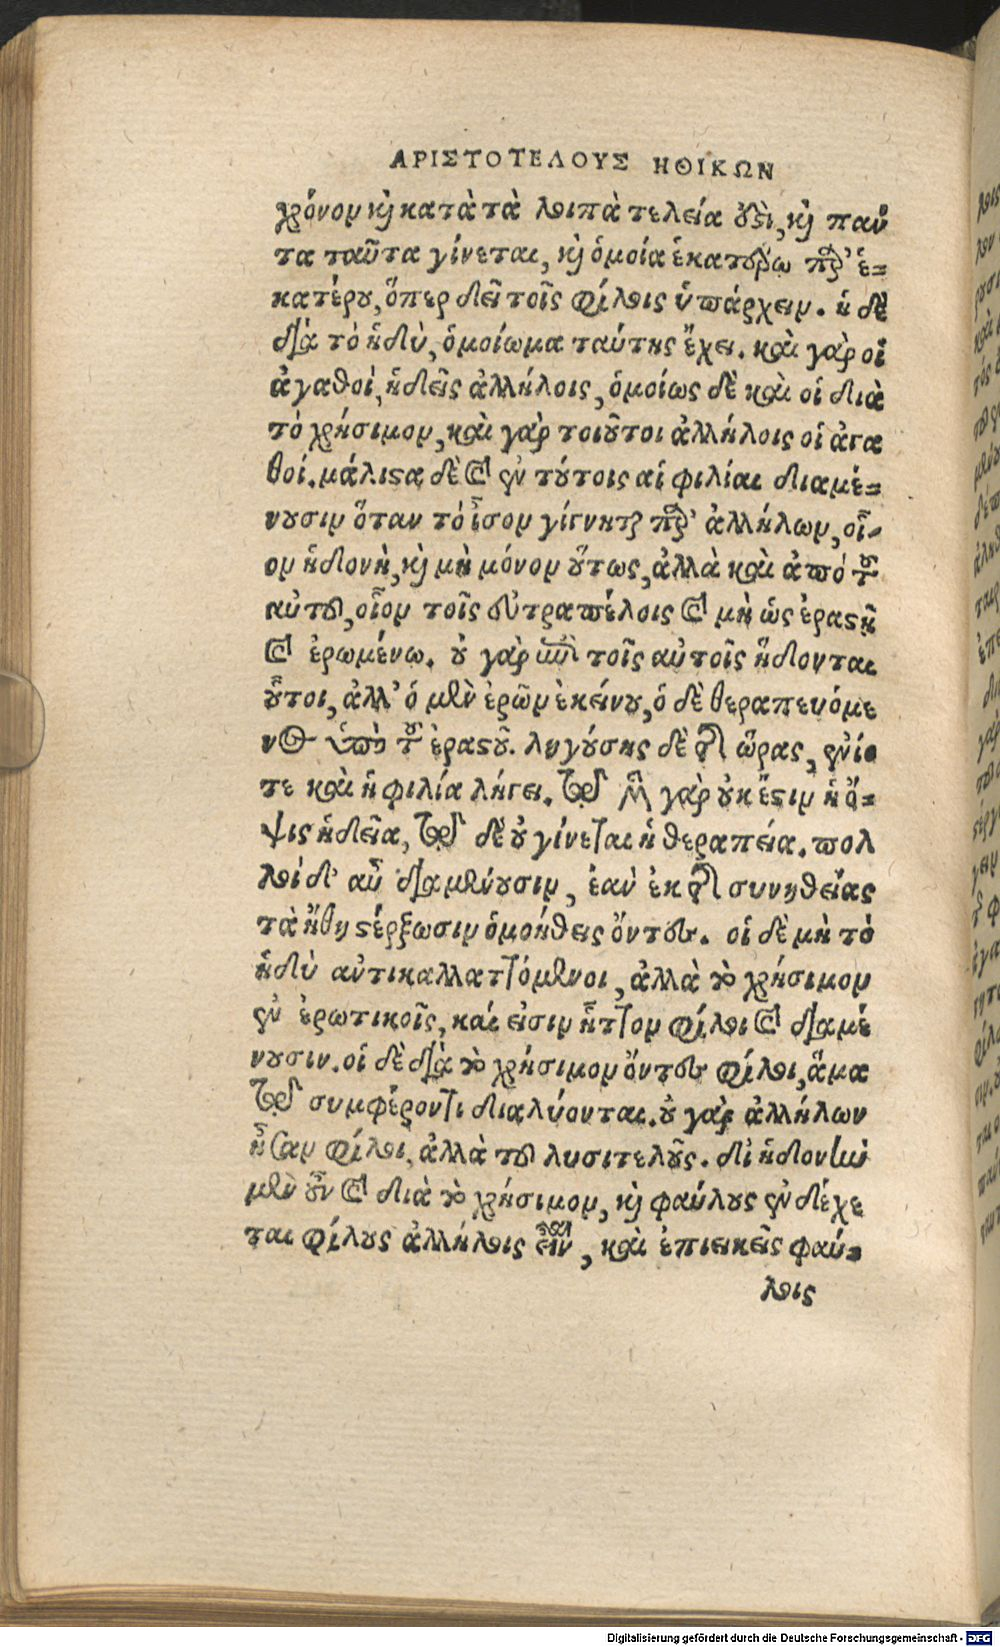 ΑΡΙΣΤΟΤΕΛΟΥΣ ΗΘΙΚΩΝ
χρόνον καὶ κατὰ τὰ λοιπὰ τελεία ὀστὶ, καὶ παν
τα ταῦτα γίνεται, καὶ ὁμοία ἑκατέρω πρὸς ἑ-
κατέρου, ὅπερ δεῖ τοῖς φίλοις ὑπάρχειν. ἡ δὲ
διὰ τὸ ἡδὺ, ὁμοίωμα ταύτης ἔχει. καὶ γὰρ οἱ
ἀγαθοὶ, ἡδεῖς ἀλλήλοις, ὁμοίως δὲ καὶ οἱ διὰ
τὸ χρήσιμον, καὶ γὰρ τοιοῦτοι ἀλλήλοις οἱ ἀγα
θοί. μάλιστα δὲ καὶ ἐν τούτοις αἱ φιλίαι διαμέ-
νουσιν ὅταν τὸ ἶσον γίγνηται παρ' ἀλλήλων, οἷ-
ον ἡδονὴ, καὶ μὴ μόνον οὕτως, ἀλλὰ καὶ ἀπὸ τοῦ
αὐτοῦ, οἷον τοῖς εὐτραπέλοις καὶ μὴ ὡς ἐραστῇ
καὶ ἐρωμένω. οὐ γὰρ ἐπὶ τοῖς αὐτοῖς ἥδονται
οὗτοι, ἀλλ' ὁ μὲν ὁρῶν ἐκείνου, ὁ δὲ θεραπευόμε
νος ὑπὸ τοῦ ἐραστοῦ. ληγούσης δὲ τῆς ὥρας, ἐνίο
τε καὶ ἡ φιλία λήγει. τῷ μὲν γὰρ οὐκ ἔστιν ἡ ὄ-
ψις ἡδεῖα, τῷ δὲ οὐ γίνεται ἡ θεραπεία. πολ
λοὶ δ' αὖ διαμένουσιν, ἐὰν ἐκ τῆς συνηθείας
τὰ ἤθη στέρξωσιν ὁμοήθεις ὄντες. οἱ δὲ μὴ τὸ
ἡδὺ αὐτικαλλαττόμενοι, ἀλλὰ τὸ χρήσιμον
ἐν ἐρωτικοῖς, καί εἰσιν ἧττον φίλοι καὶ διαμέ
νουσιν. οἱ δὲ διὰ τὸ χρήσιμον ὄντες φίλοι, ἅμα
τῷ συμφέροντι διαλύονται. οὐ γὰρ ἀλλήλων
ἦσαν φίλοι, ἀλλὰ τοῦ λυσιτελοῦς. δι' ἡδονὴν
μὲν οὖν καὶ διὰ τὸ χρήσιμον, καὶ φαύλους ἐνδέχε
ται φίλους ἀλλήλοις εἶναι, καὶ ἐπιεικεῖς φαύ-
λοις
Digitalisierung gefördert durch die Deutsche Forschungsgemeinschaft - DFG